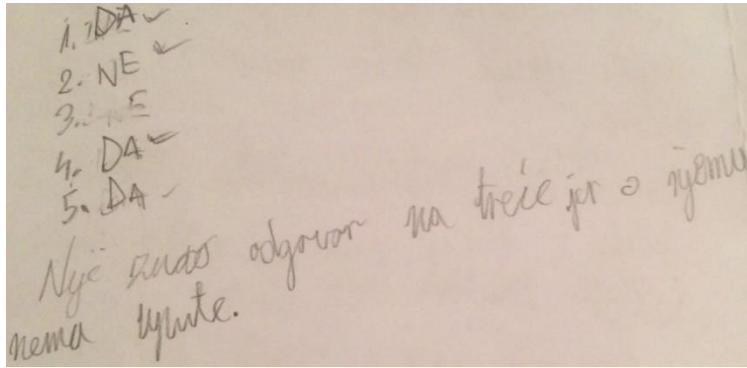 1. DA ✓
2. NE ✓
3. NE
4. DA ✓
5. DA ✓
Nije znao odgovor na treće jer o njemu
nema upute.